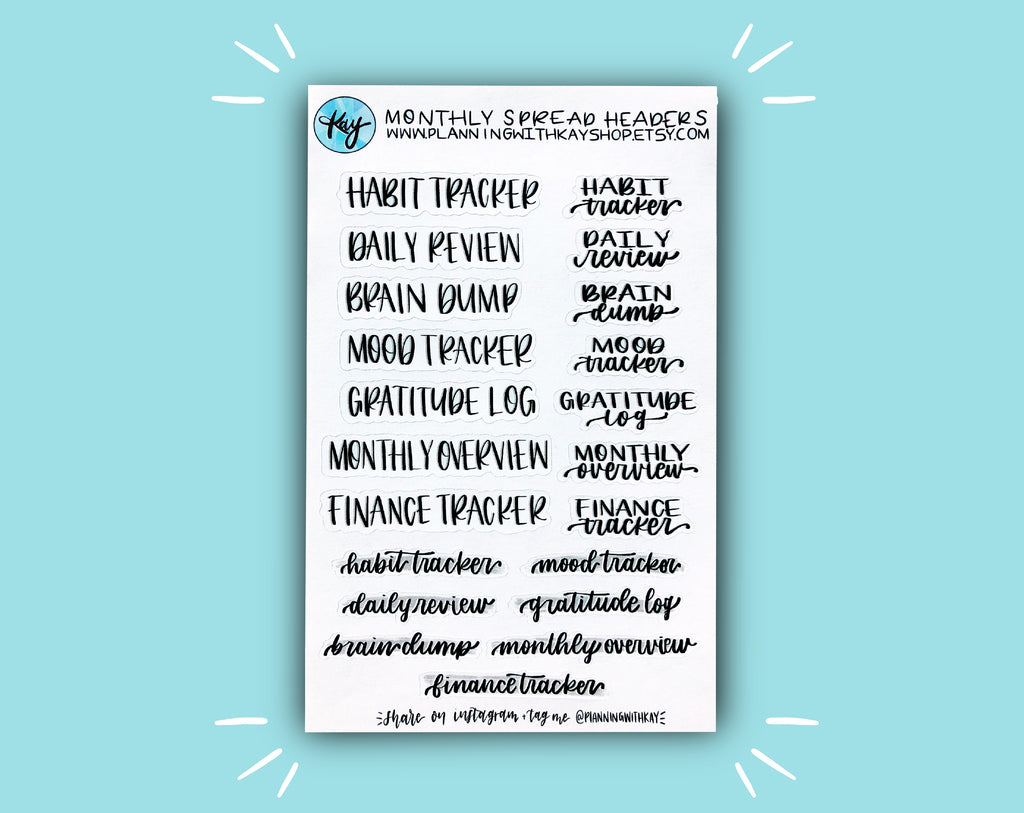 Kay
MONTHLY SPREAD HEADERS
WWW.PLANNINGWITHKAYSHOP.ETSY.COM
HABIT TRACKER
HABIT
tracker
DAILY REVIEW
DAILY
review
BRAIN DUMP
BRAIN
dump
MOOD TRACKER
MOOD
tracker
GRATITUDE LOG
GRATITUDE
log
MONTHLY OVERVIEW
MONTHLY
overview
FINANCE TRACKER
FINANCE
tracker
habit tracker
mood tracker
daily review
gratitude log
brain dump
monthly overview
finance tracker
share on instagram + tag me @PLANNINGWITHKAY